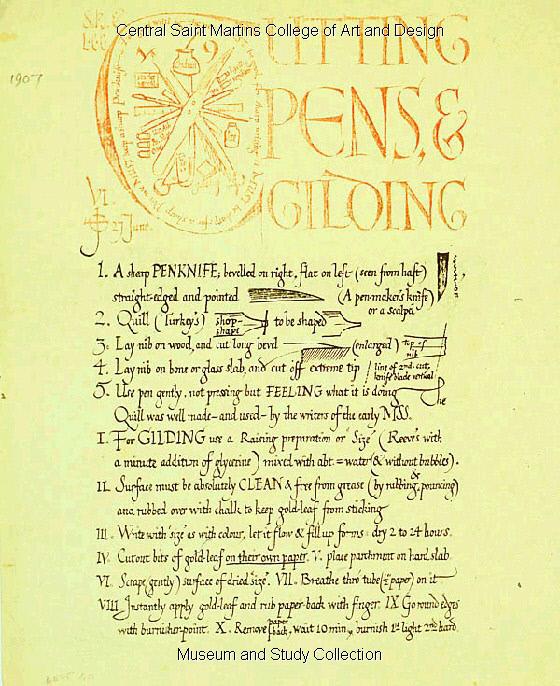 Central Saint Martins College of Art and Design
1907
CUTTING
PENS, &
GILDING
VI.
27 June.
1. A sharp PENKNIFE; bevelled on right, flat on left (seen from haft)
straight-edged and pointed (A penmaker's knife)
or a scalpel
2. Quill (Turkey's) shop-shape to be shaped
3. Lay nib on wood, and cut long bevil (enlarged) top of nib
4. Lay nib on bone or glass slab, and cut off extreme tip line of 2nd. cut. knife blade vertical
5. Use pen gently, not pressing but FEELING what it is doing
Quill was well made–and used–by the writers of the early MSS.
I. For GILDING use a Raising preparation or "Size" (Reeves with
a minute addition of glycerine) mixed with abt. = water (& without bubbles).
II. Surface must be absolutely CLEAN & free from grease (by rubbing, or pouncing)
and rubbed over with chalk to keep gold-leaf from sticking
III. Write with 'size' as with colour, let it flow & fill up forms: dry 2 to 24 hours.
IV. Cut out bits of gold-leaf on their own paper. V. place parchment on hard slab.
VI. Scrape (gently) surface of dried "size". VII. Breathe thro' tube (paper) on it
VIII. Instantly apply gold-leaf and rub paper-back with finger. IX. Go round edges
with burnisher-point. X. Remove paper back, wait 10 min, burnish 1st light 2nd hard.
Museum and Study Collection